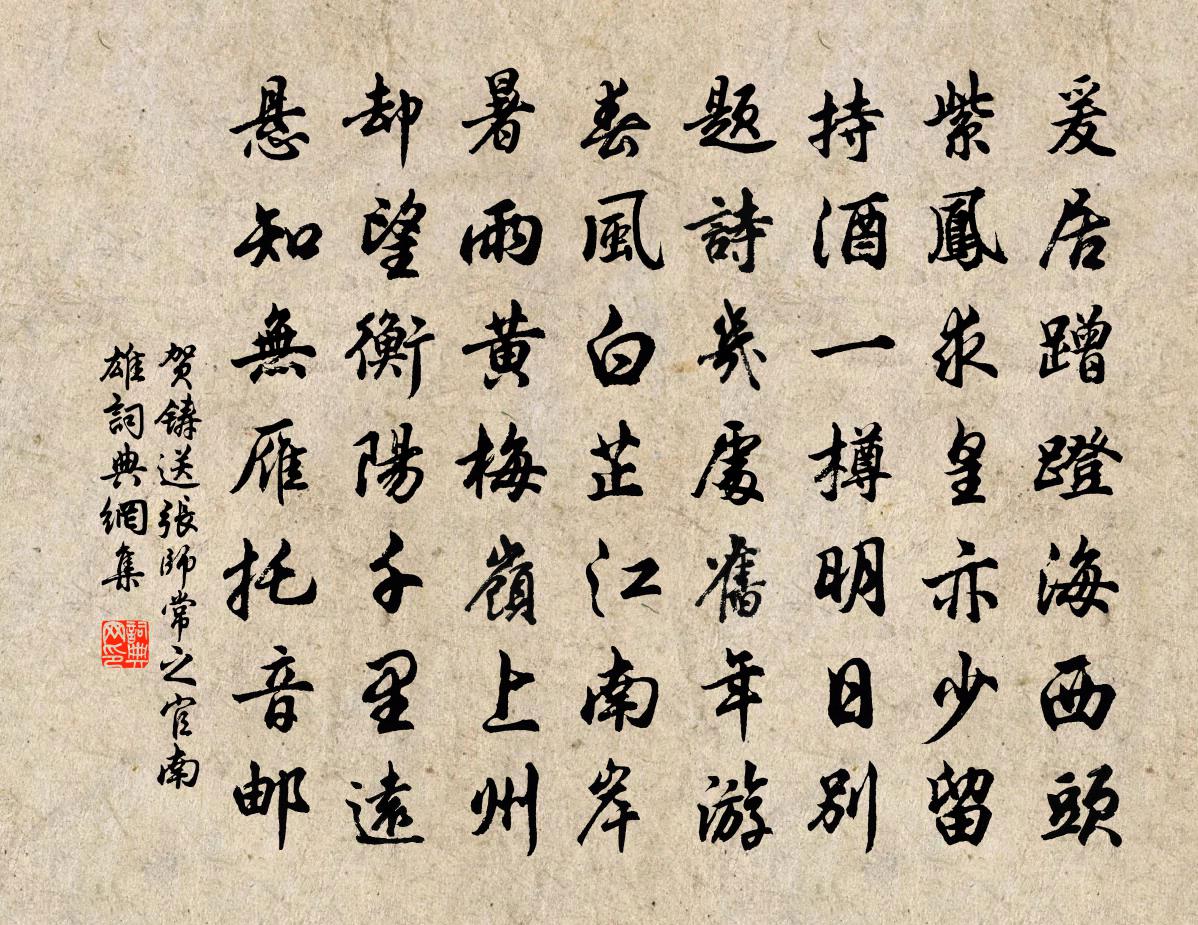 爰居蹭蹬海西頭
紫鳳求皇亦少留
持酒一樽明日別
題詩幾處舊年游
春風白芷江南岸
暑雨黃梅嶺上州
却望衡陽千里遠
悬知無雁托音邮
贺鑄送張師常之官南
雄詞典網集
詞典
网印